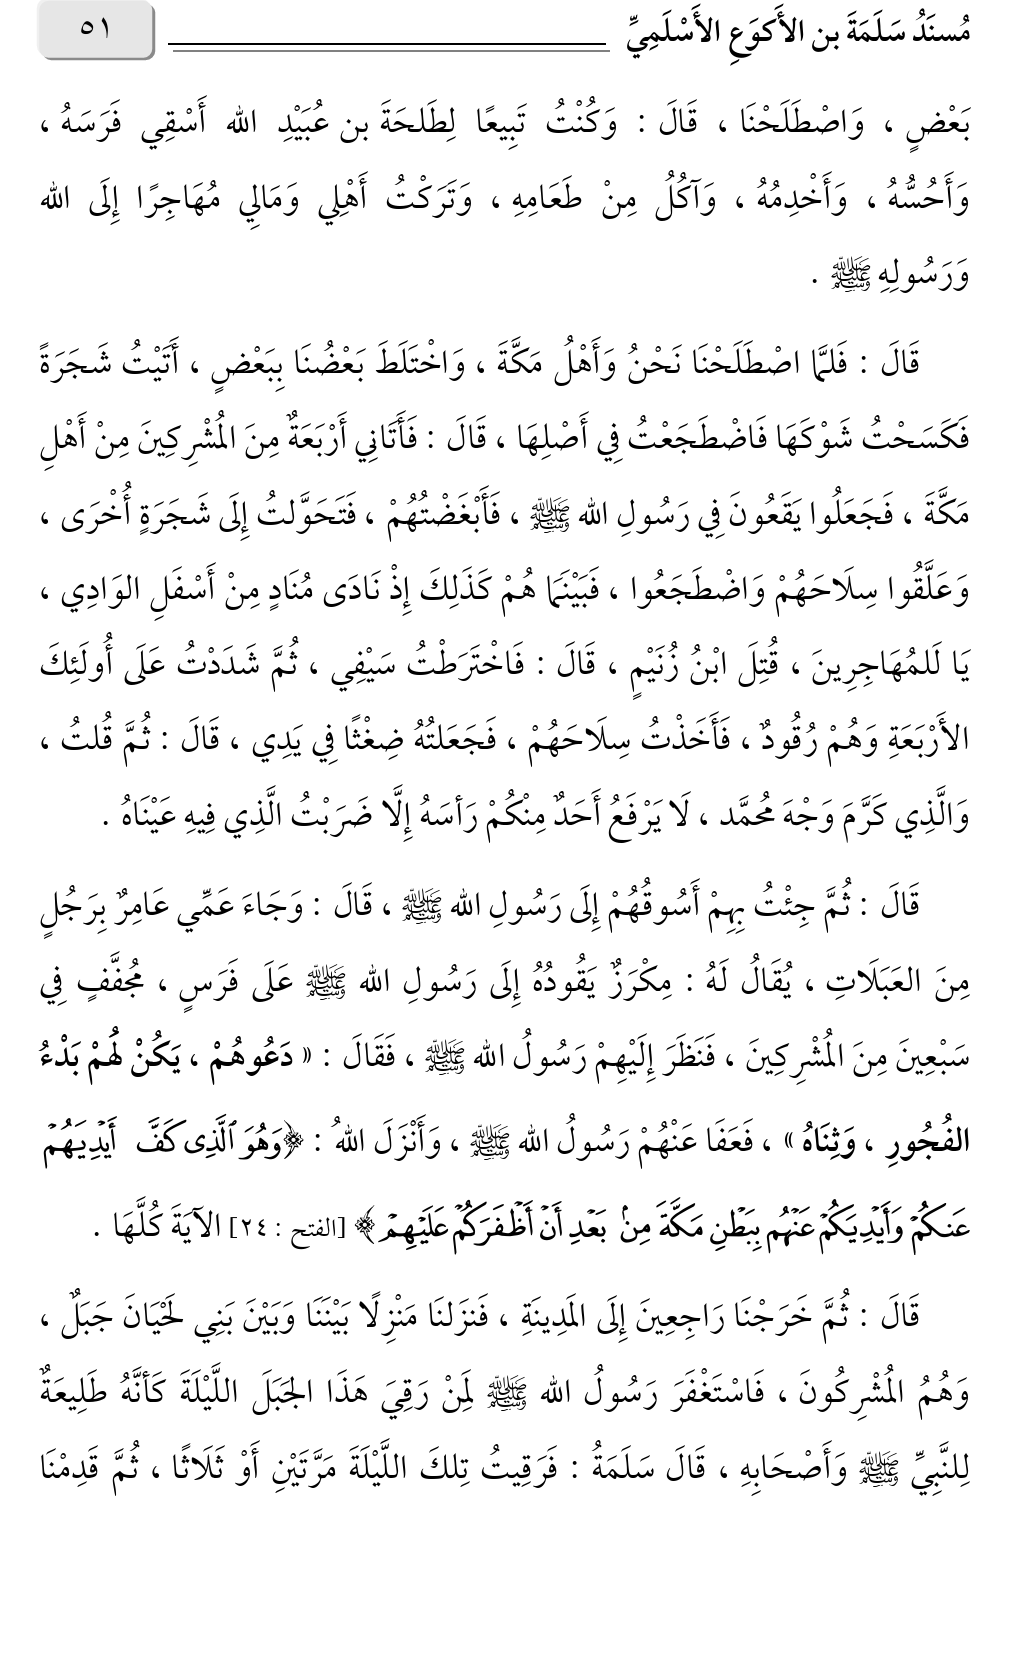 مُسنَدُ سَلَمَةَ بن الأَكوَعِ الأَسْلَمِيِّ ٥١
بَعْضٍ ، وَاصْطَلَحْنَا ، قَالَ : وَكُنْتُ تَبِيعًا لِطَلحَةَ بن عُبَيْدِ الله أَسْقِي فَرَسَهُ ،
وَأَحُسُّهُ ، وَأَخْدِمُهُ ، وَآكُلُ مِنْ طَعَامِهِ ، وَتَرَكْتُ أَهْلِي وَمَالِي مُهَاجِرًا إِلَى الله
وَرَسُولِهِ ﷺ .
قَالَ : فَلَمَّا اصْطَلَحْنَا نَحْنُ وَأَهْلُ مَكَّةَ ، وَاخْتَلَطَ بَعْضُنَا بِبَعْضٍ ، أَتَيْتُ شَجَرَةً
فَكَسَحْتُ شَوْكَهَا فَاضْطَجَعْتُ فِي أَصْلِهَا ، قَالَ : فَأَتَانِي أَرْبَعَةٌ مِنَ المُشْرِكِينَ مِنْ أَهْلِ
مَكَّةَ ، فَجَعَلُوا يَقَعُونَ فِي رَسُولِ الله ﷺ ، فَأَبْغَضْتُهُمْ ، فَتَحَوَّلتُ إِلَى شَجَرَةٍ أُخْرَى ،
وَعَلَّقُوا سِلَاحَهُمْ وَاضْطَجَعُوا ، فَبَيْنَمَا هُمْ كَذَلِكَ إِذْ نَادَى مُنَادٍ مِنْ أَسْفَلِ الوَادِي ،
يَا لَلمُهَاجِرِينَ ، قُتِلَ ابْنُ زُنَيْمٍ ، قَالَ : فَاخْتَرَطْتُ سَيْفِي ، ثُمَّ شَدَدْتُ عَلَى أُولَئِكَ
الأَرْبَعَةِ وَهُمْ رُقُودٌ ، فَأَخَذْتُ سِلَاحَهُمْ ، فَجَعَلتُهُ ضِغْثًا فِي يَدِي ، قَالَ : ثُمَّ قُلتُ ،
وَالَّذِي كَرَّمَ وَجْهَ مُحمَّد ، لَا يَرْفَعُ أَحَدٌ مِنْكُمْ رَأسَهُ إِلَّا ضَرَبْتُ الَّذِي فِيهِ عَيْنَاهُ .
قَالَ : ثُمَّ جِئْتُ بِهِمْ أَسُوقُهُمْ إِلَى رَسُولِ الله ﷺ ، قَالَ : وَجَاءَ عَمِّي عَامِرٌ بِرَجُلٍ
مِنَ العَبَلَاتِ ، يُقَالُ لَهُ : مِكْرَزٌ يَقُودُهُ إِلَى رَسُولِ الله ﷺ عَلَى فَرَسٍ ، مُجفَّفٍ فِي
سَبْعِينَ مِنَ المُشْرِكِينَ ، فَنَظَرَ إِلَيْهِمْ رَسُولُ الله ﷺ ، فَقَالَ : « دَعُوهُمْ ، يَكُنْ لَهُمْ بَدْءُ
الفُجُورِ ، وَثِنَاهُ » ، فَعَفَا عَنْهُمْ رَسُولُ الله ﷺ ، وَأَنْزَلَ اللهُ : ﴿وَهُوَ ٱلَّذِى كَفَّ أَيۡدِيَهُمۡ
عَنكُمۡ وَأَيۡدِيَكُمۡ عَنۡهُم بِبَطۡنِ مَكَّةَ مِنۢ بَعۡدِ أَنۡ أَظۡفَرَكُمۡ عَلَيۡهِمۡ﴾ [الفتح : ٢٤] الآيَةَ كُلَّهَا .
قَالَ : ثُمَّ خَرَجْنَا رَاجِعِينَ إِلَى المَدِينَةِ ، فَنزَلنَا مَنْزِلًا بَيْنَنَا وَبَيْنَ بَنِي لَحْيَانَ جَبَلٌ ،
وَهُمُ المُشْرِكُونَ ، فَاسْتَغْفَرَ رَسُولُ الله ﷺ لَمِنْ رَقِيَ هَذَا الجَبَلَ اللَّيْلَةَ كَأَنَّهُ طَلِيعَةٌ
لِلنَّبِيِّ ﷺ وَأَصْحَابِهِ ، قَالَ سَلَمَةُ : فَرَقِيتُ تِلكَ اللَّيْلَةَ مَرَّتَيْنِ أَوْ ثَلَاثًا ، ثُمَّ قَدِمْنَا